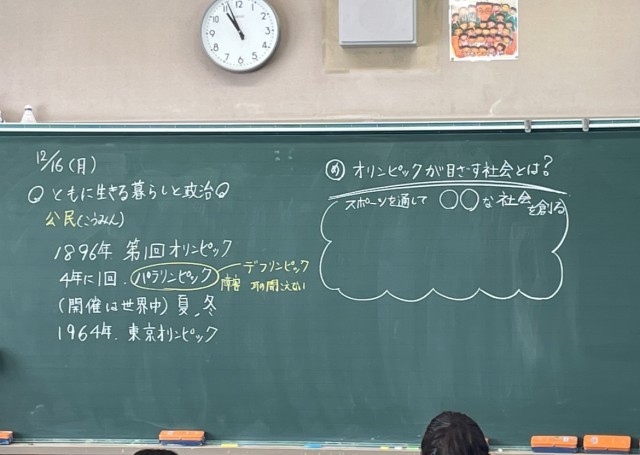 12/16(月)
ともに生きる暮らしと政治
公民(こうみん)
1896年 第1回オリンピック
4年に1回. パラリンピック
デフリンピック
障害 耳の聞こえない
(開催は世界中) 夏、冬
1964年. 東京オリンピック
め オリンピックが目ざす社会とは?
スポーツを通して ○○な社会を創る